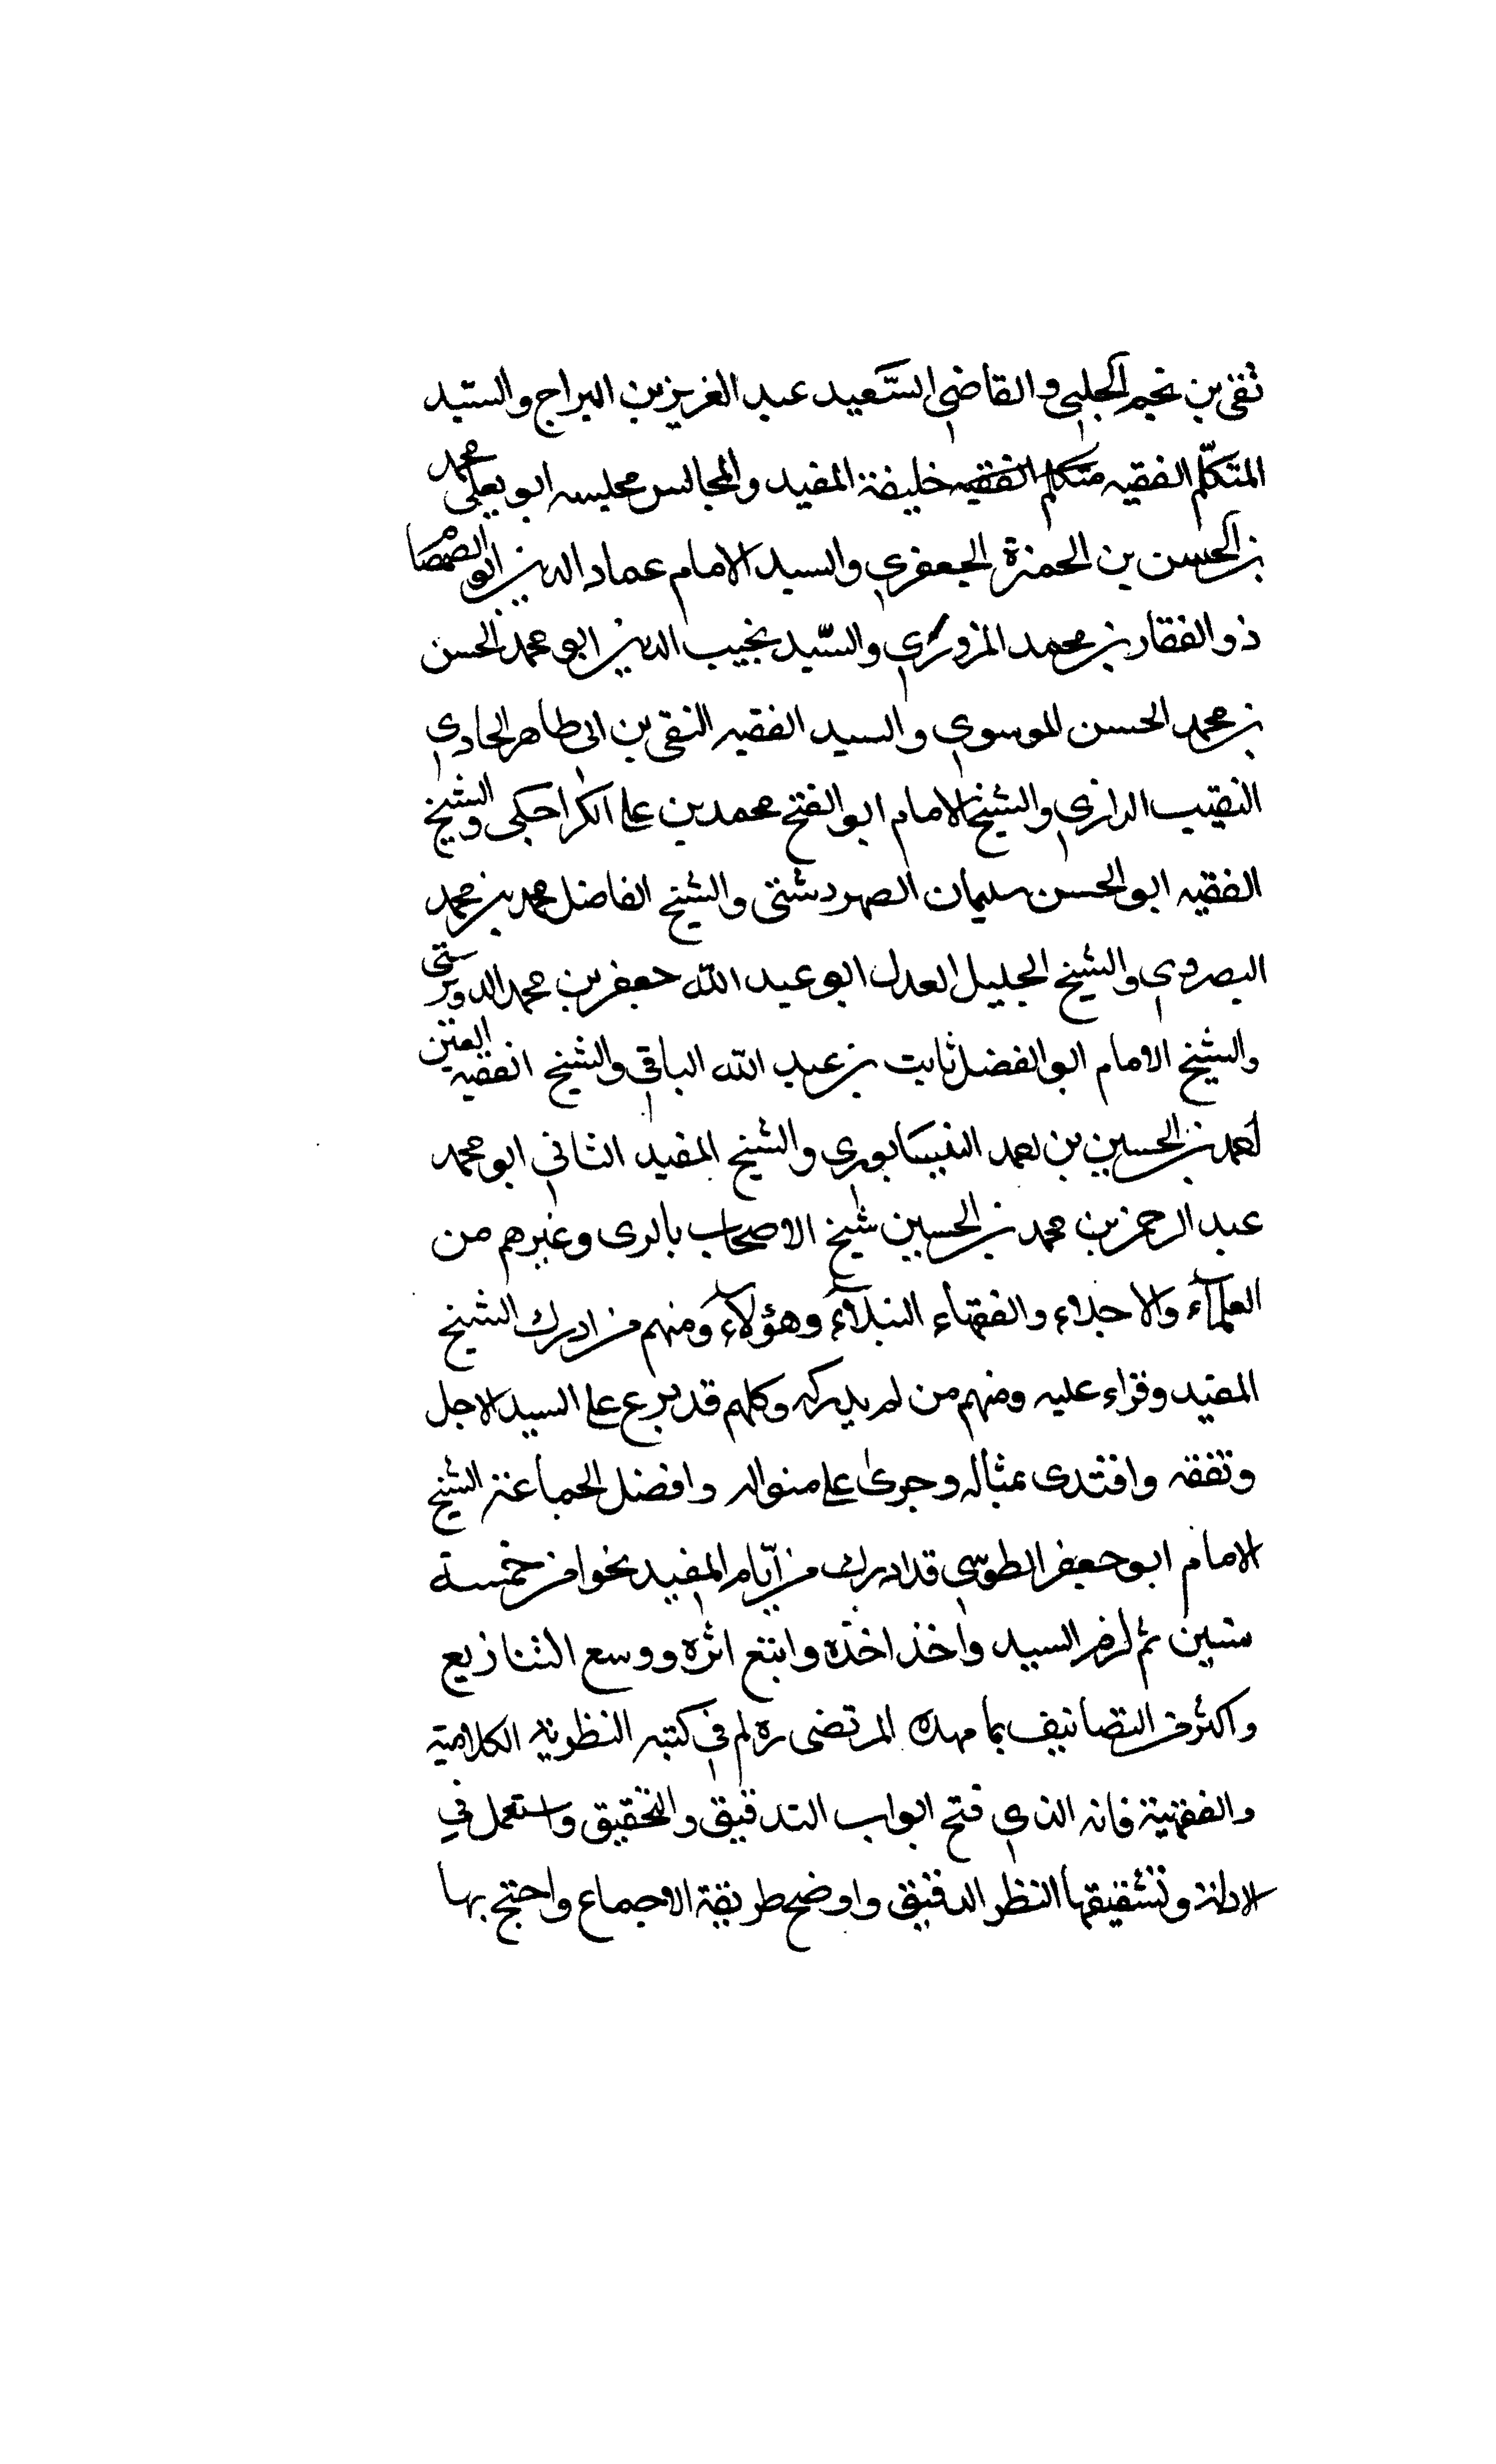 تقى بن نجيم الحلبى والقاضى السَّعيد عبد العزيز بن البراج والسيّد
المتكلّم الفقيه متكلم الفقيه خليفة المفيد والمجالس مجلسه ابو يعلى محمد
بن الحسن بن الحمزة الجعفرى والسيد الامام عماد الدين ابو الصمصام
ذو الفقار بن محمد المروزى والسّيد نجيب الدين ابو محمد الحسن
بن محمد الحسن الموسوى والسيد الفقيه التقى بن ابى طاهر الهادى
النقيب الرازى والشيخ الامام ابو الفتح محمد بن على الكراجكى والشيخ
الفقيه ابو الحسن سليمان الصهردشتى والشيخ الفاضل محمد بن محمد
البصروى والشيخ الجليل العدل ابو عبد الله جعفر بن محمد الدوريستى
والشيخ الامام ابو الفضل ثابت بن عبد الله البناقى والشيخ الفقيه
احمد بن الحسين بن احمد النيسابورى والشيخ المفيد الثانى ابو محمد
عبد الرحمن بن محمد بن الحسين شيخ الاصحاب بالرى وغيرهم من
العلمآء والاجلاء والفقهاء النبلآء وهؤلآء ومنهم من ادرك الشيخ
المفيد وقراء عليه ومنهم من لم يدركه وكلهم قد برع على السيد الاجل
وتفقه واقتدى بمثاله وجرى على منواله وافضل الجماعة الشيخ
الامام ابو جعفر الطوسى قد ادرك من ايّام المفيد نحوا من خمسة
سنين ثم لزم السيد واخذ اخذه واتبع اثره ووسع التفاريع
واكثر من التصانيف بما مهده المرتضى ره لم فى كتبه النظرية الكلامية
والفقهية فانه الذى فتح ابواب التدقيق والتحقيق واستعمل فى
الادلة وتشقيقها النظر الدقيق واوضح طريقة الاجماع واحتج بها